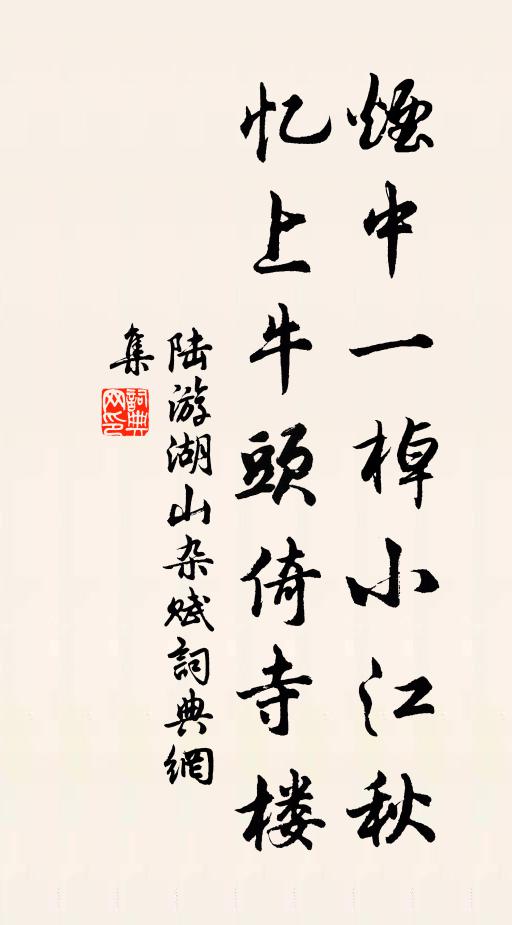 煙中一棹小江秋
忆上牛頭倚寺楼
陆游湖山杂赋詞典網
集
詞典网印